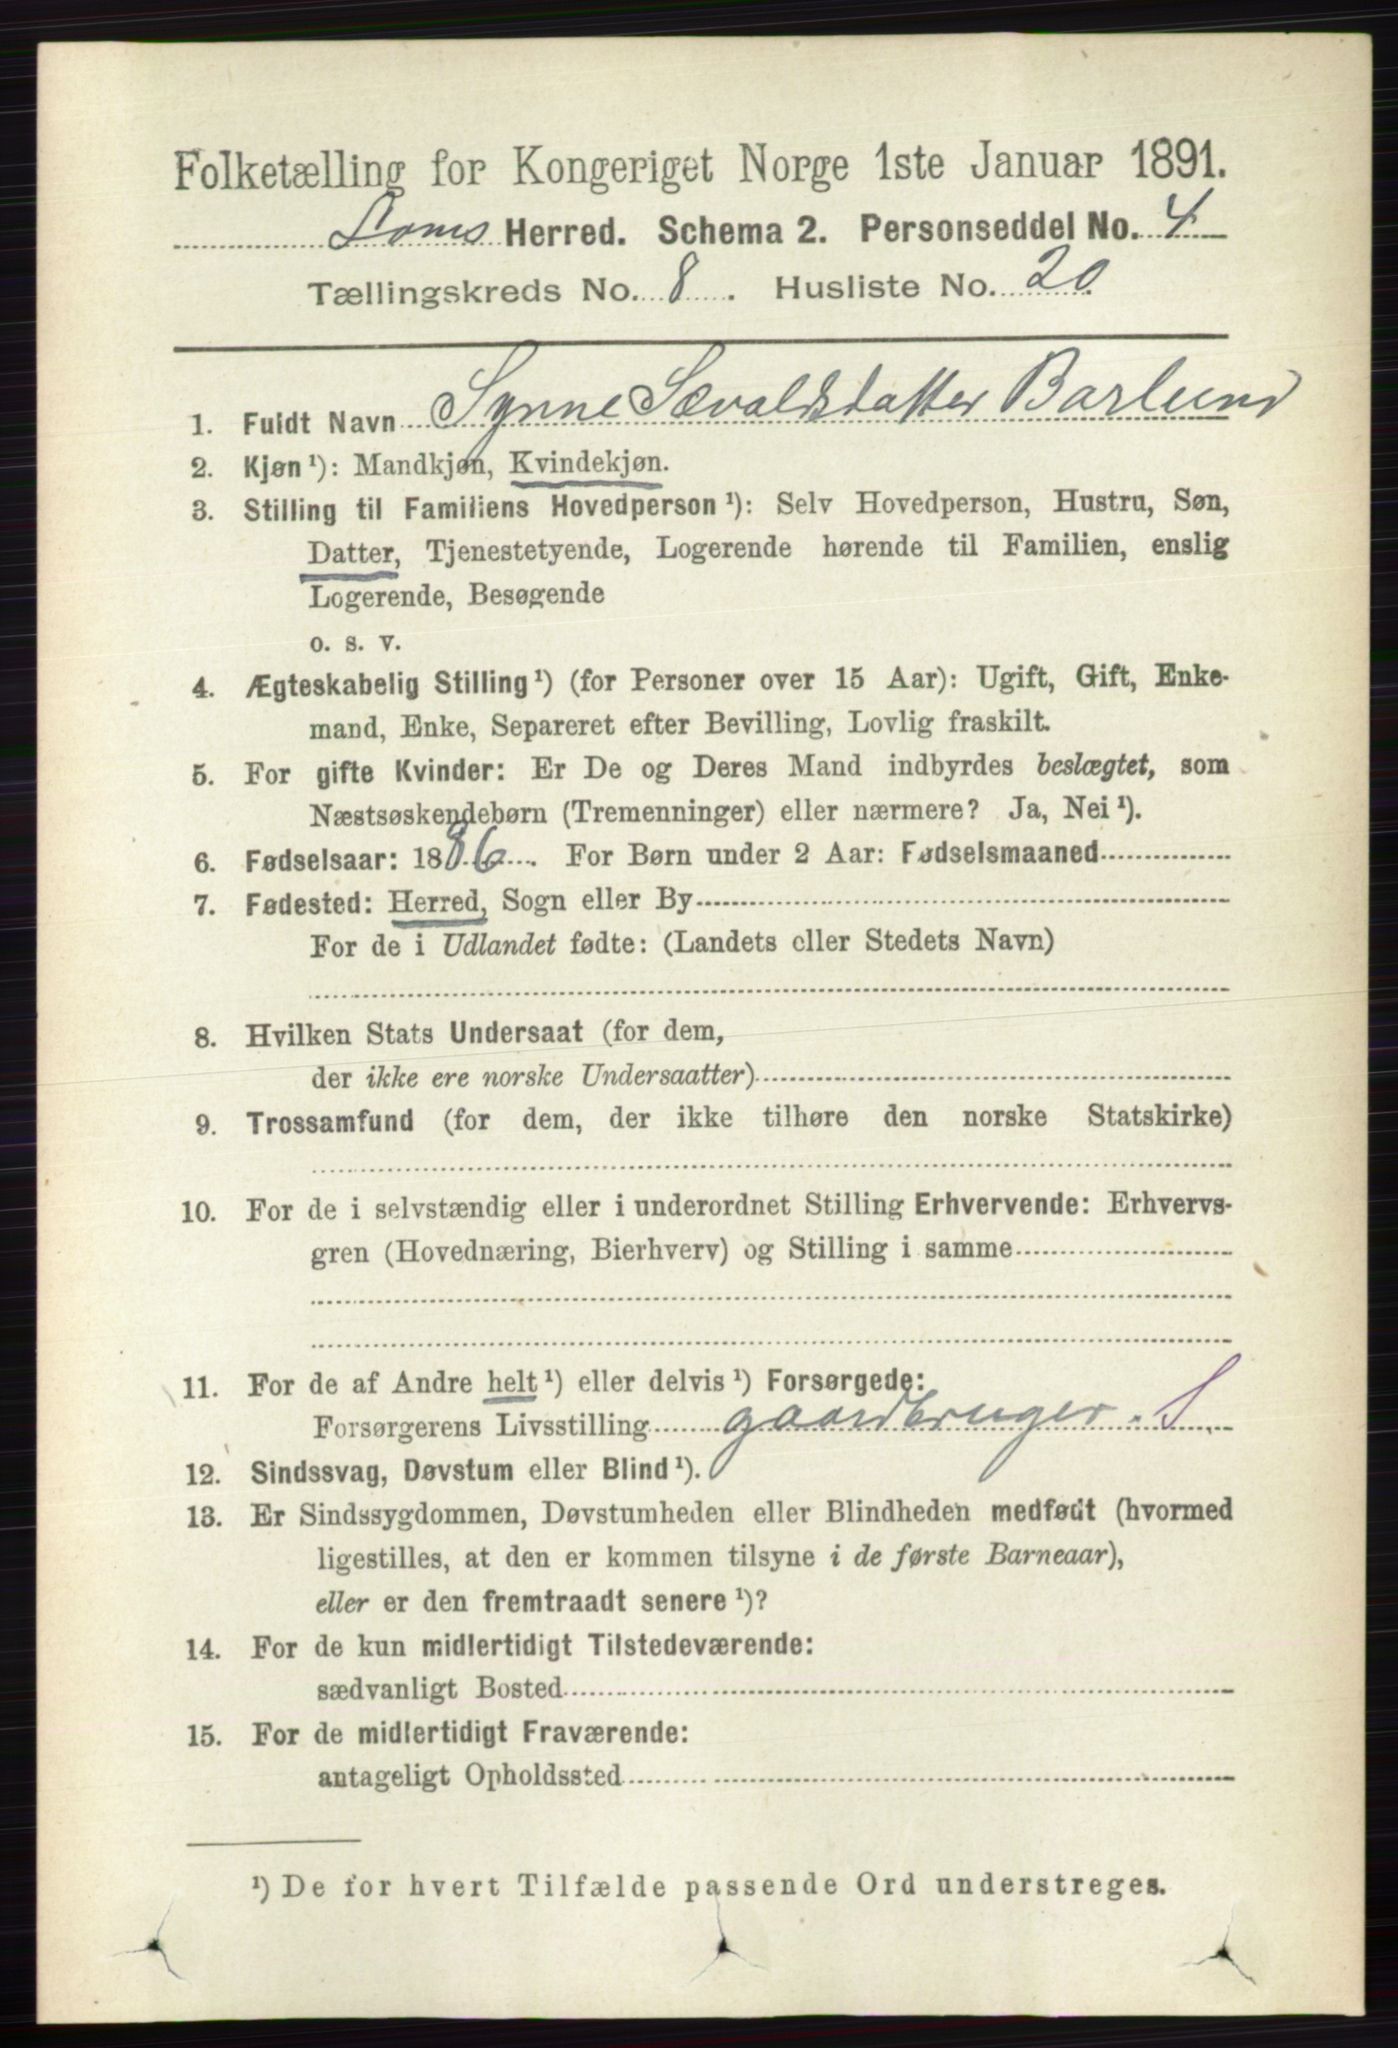 Folketælling for Kongeriget Norge 1ste Januar 1891.
Loms Herred. Schema 2. Personseddel No. 4
Tællingskreds No. 8. Husliste No. 20
1. Fuldt Navn Synne Sævaldsdatter Barlund
2. Kjøn ¹): Mandkjøn, Kvindekjøn.
3. Stilling til Familiens Hovedperson ¹): Selv Hovedperson, Hustru, Søn,
Datter, Tjenestetyende, Logerende hørende til Familien, enslig
Logerende, Besøgende
o. s. v.
4. Ægteskabelig Stilling ¹) (for Personer over 15 Aar): Ugift, Gift, Enke-
mand, Enke, Separeret efter Bevilling, Lovlig fraskilt.
5. For gifte Kvinder: Er De og Deres Mand indbyrdes beslægtet, som
Næstsøskendebørn (Tremenninger) eller nærmere? Ja, Nei ¹).
6. Fødselsaar: 1886. For Børn under 2 Aar: Fødselsmaaned
7. Fødested: Herred, Sogn eller By
For de i Udlandet fødte: (Landets eller Stedets Navn)
8. Hvilken Stats Undersaat (for dem,
der ikke ere norske Undersaatter)
9. Trossamfund (for dem, der ikke tilhøre den norske Statskirke)
10. For de i selvstændig eller i underordnet Stilling Erhvervende: Erhvervs-
gren (Hovednæring, Bierhverv) og Stilling i samme
11. For de af Andre helt ¹) eller delvis ¹) Forsørgede:
Forsørgerens Livsstilling gaardbruger. S
12. Sindssvag, Døvstum eller Blind ¹).
13. Er Sindssygdommen, Døvstumheden eller Blindheden medfødt (hvormed
ligestilles, at den er kommen tilsyne i de første Barneaar),
eller er den fremtraadt senere ¹)?
14. For de kun midlertidigt Tilstedeværende:
sædvanligt Bosted
15. For de midlertidigt Fraværende:
antageligt Opholdssted
¹) De for hvert Tilfælde passende Ord understreges.